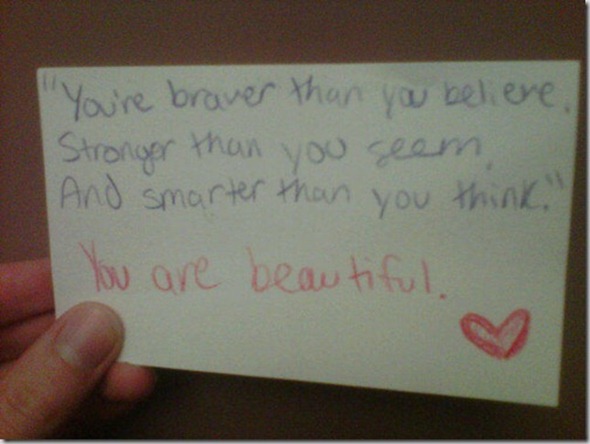 "You're braver than you believe.
Stronger than you seem,
And smarter than you think."
You are beautiful.